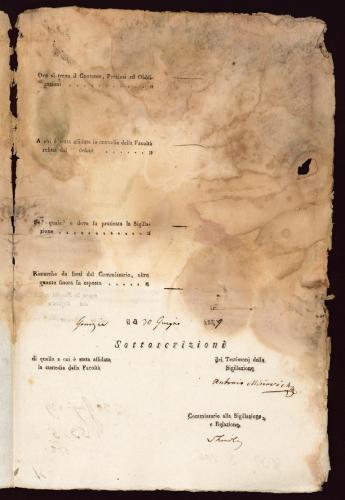 Ove si trova il Contante, Preziosi ed Obbli-
gazioni . . . . . . . . . . . "
A chi è stata affidata la custodia della Facoltà
relitta dal
Se? quale? e dove fu praticata la Sigilla-
zione . . . . . . . . . . . "
Rimarche da farsi dal Commissario, oltre
quanto finora fu esposto . . . . "
li 30 Giugno
Sottoscrizioni
di quello a cui è stata affidata
la custodia della Facoltà
dei Testimonj della
Sigillazione
Antonio
Commissario alla Sigillazione
e Relazione